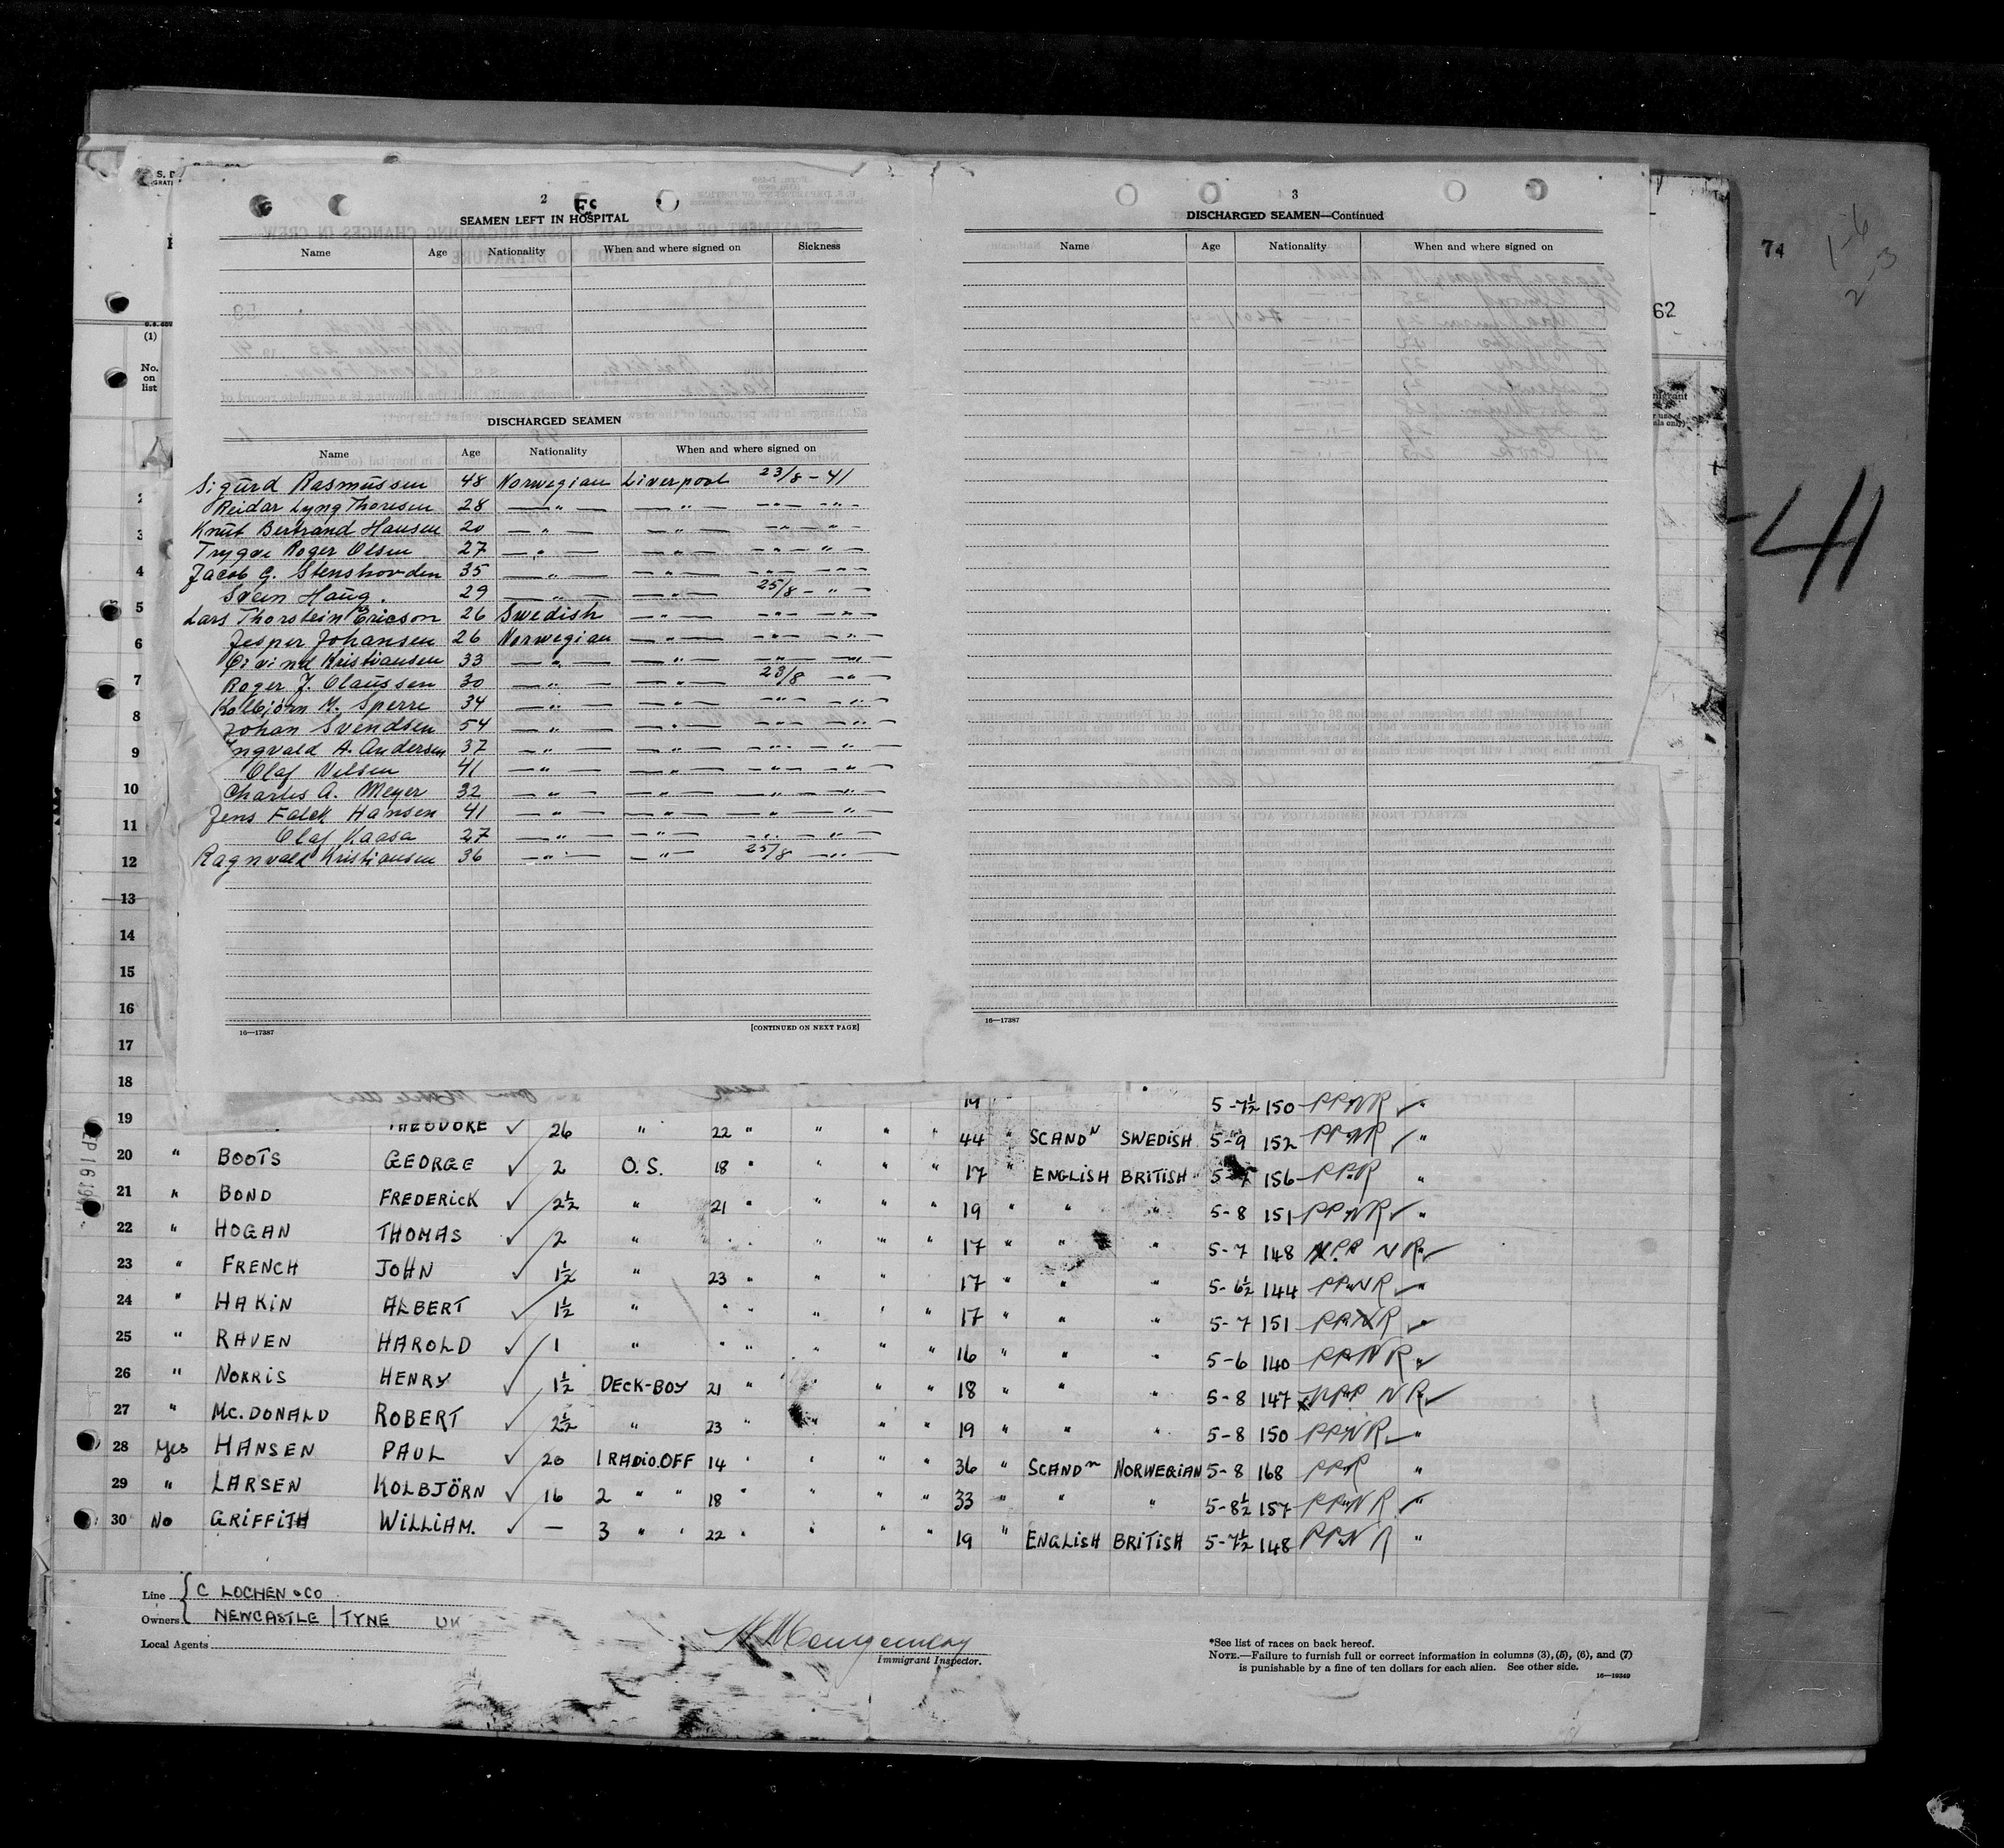 2
SEAMEN LEFT IN HOSPITAL
Name Age Nationality When and where signed on Sickness
DISCHARGED SEAMEN
Name Age Nationality When and where signed on
Sigurd Rasmussen 48 Norwegian Liverpool 23/8-41
Reidar Lyng Thoresen 28 —"— —"— —"— —"—
Knut Bertrand Hansen 20 —"— —"— —"— —"—
Trygve Roger Olsen 27 —"— —"— —"— —"—
Jacob G. Stenshorden 35 —"— —"— —"— —"—
Svein Haug. 29 —"— —"— 25/8 - "—
Lars Thorstein Ericson 26 Swedish —"— —"— —"—
Jesper Johansen 26 Norwegian —"— —"— —"—
Oivind Kristiansen 33 —"— —"— —"— —"—
Roger J. Claussen 30 —"— —"— 23/8 —"—
Kolbjorn M. Sperre 34 —"— —"— —"— —"—
Johan Svendsen 54 —"— —"— —"— —"—
Ingvald A. Andersen 37 —"— —"— —"— —"—
Olaf Nilsen 41 —"— —"— —"— —"—
Charles A. Meyer 32 —"— —"— —"— —"—
Jens Falck Hansen 41 —"— —"— —"— —"—
Olaf Kaasa 27 —"— —"— —"— —"—
Ragnvald Kristiansen 36 —"— —"— 25/8 —"—
16—17387 [CONTINUED ON NEXT PAGE]
3
DISCHARGED SEAMEN—Continued
Name Age Nationality When and where signed on
16—17387
74
62
-41
(1)
No. on list
3
4
5
6
7
8
9
10
11
12
13
14
15
16
17
18
19 5-7½ 150 PPNR ✓ "
THEODORE ✓ 26 " 22 " " " " 44 " SCANDN SWEDISH 5-9 152 PPNR ✓ "
20 " BOOTS GEORGE ✓ 2 O.S. 18 " " " " 17 " ENGLISH BRITISH 156 PPR "
21 " BOND FREDERICK ✓ 2½ " 21 " " " " 19 " " " 5-8 151 PPNR ✓ "
22 " HOGAN THOMAS ✓ 2 " " " " " " 17 " " " 5-7 148 NPP NR ✓
23 " FRENCH JOHN ✓ 1½ " 23 " " " 17 " " " 5-6½ 144 PPNR ✓
24 " HAKIN ALBERT ✓ 1½ " " " " " " 17 " " " 5-7 151 PPNR ✓
25 " RAVEN HAROLD ✓ 1 " " " " " " 16 " " " 5-6 140 PPNR ✓
26 " NORRIS HENRY ✓ 1½ DECK-BOY 21 " " " " 18 " " " 5-8 147 NPP NR ✓
27 " MC.DONALD ROBERT ✓ 2½ " 23 " " " " 19 " " " 5-8 150 PPNR ✓ "
28 Yes HANSEN PAUL ✓ 20 1 RADIO.OFF 14 " " " " 36 " SCANDN NORWEGIAN 5-8 168 PPR "
29 " LARSEN KOLBJÖRN ✓ 16 2 " " 18 " " " " 33 " " " 5-8½ 157 PPNR ✓ "
30 No GRIFFITH WILLIAM. ✓ — 3 " " 22 " " " " 19 " ENGLISH BRITISH 5-7½ 148 PPNR "
Line C LOCHEN & CO
Owners NEWCASTLE / TYNE UK
Local Agents
H Montgomery
Immigrant Inspector.
*See list of races on back hereof.
NOTE.—Failure to furnish full or correct information in columns (3), (5), (6), and (7)
is punishable by a fine of ten dollars for each alien. See other side.
16—19349